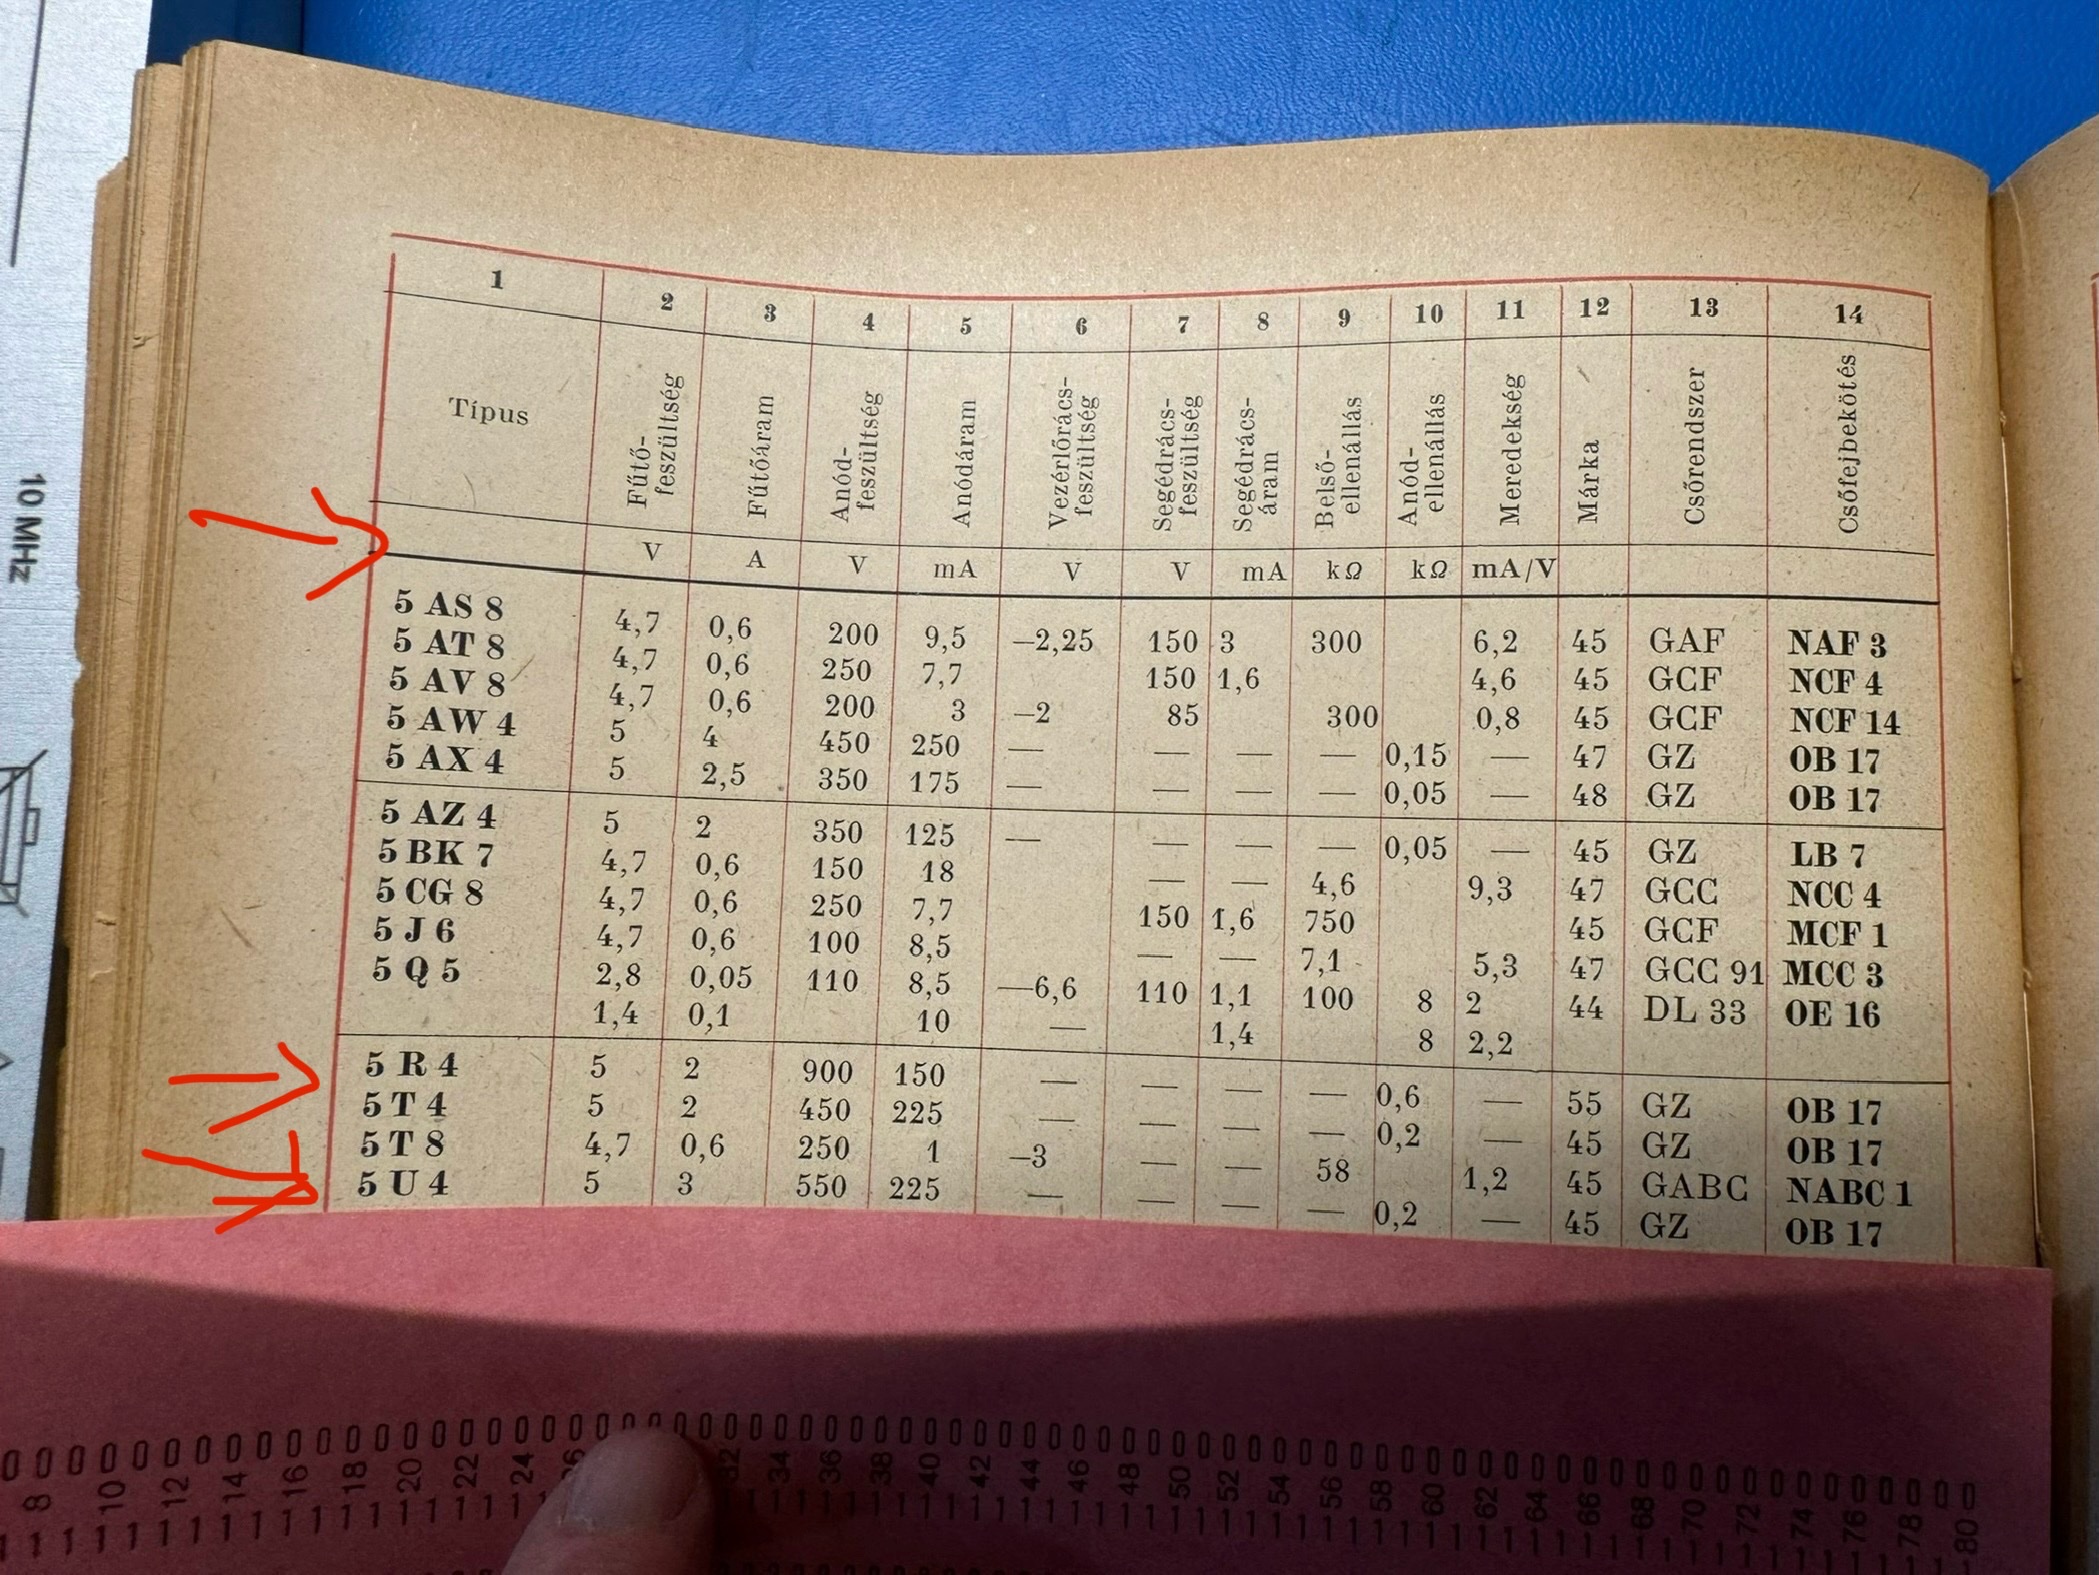 10 MHz
1 2 3 4 5 6 7 8 9 10 11 12 13 14
Típus Fűtő-feszültség Fűtőáram Anód-feszültség Anódáram Vezérlőrács-feszültség Segédrács-feszültség Segédrács-áram Belső-ellenállás Anód-ellenállás Meredekség Márka Csőrendszer Csőfejbekötés
V A V mA V V mA kΩ kΩ mA/V
5 AS 8 4,7 0,6 200 9,5 —2,25 150 3 300 6,2 45 GAF NAF 3
5 AT 8 4,7 0,6 250 7,7 150 1,6 4,6 45 GCF NCF 4
5 AV 8 4,7 0,6 200 3 —2 85 300 0,8 45 GCF NCF 14
5 AW 4 5 4 450 250 — — — — 0,15 — 47 GZ OB 17
5 AX 4 5 2,5 350 175 — — — — 0,05 — 48 GZ OB 17
5 AZ 4 5 2 350 125 — — — — 0,05 — 45 GZ LB 7
5 BK 7 4,7 0,6 150 18 — — 4,6 9,3 47 GCC NCC 4
5 CG 8 4,7 0,6 250 7,7 150 1,6 750 45 GCF MCF 1
5 J 6 4,7 0,6 100 8,5 — — 7,1 5,3 47 GCC 91 MCC 3
5 Q 5 2,8 0,05 110 8,5 —6,6 110 1,1 100 8 2 44 DL 33 OE 16
1,4 0,1 10 — 1,4 8 2,2
5 R 4 5 2 900 150 — — — — 0,6 — 55 GZ OB 17
5 T 4 5 2 450 225 — — — — 0,2 — 45 GZ OB 17
5 T 8 4,7 0,6 250 1 —3 — — 58 1,2 45 GABC NABC 1
5 U 4 5 3 550 225 — — — — 0,2 — 45 GZ OB 17
0 0 0 0 0 0 0 0 0 0 0 0 0 0 0 0 0 0 0 0 0 0 0 0 0 0 0 0 0 0 0 0 0 0 0 0 0 0 0 0 0 0 0 0 0 0 0 0 0 0 0 0 0 0 0 0 0 0 0 0 0 0 0 0 0 0 0 0 0
8 10 12 14 16 18 20 22 24 34 36 38 40 42 44 46 48 50 52 54 56 58 60 62 64 66 68 70 72 74 76 78 80